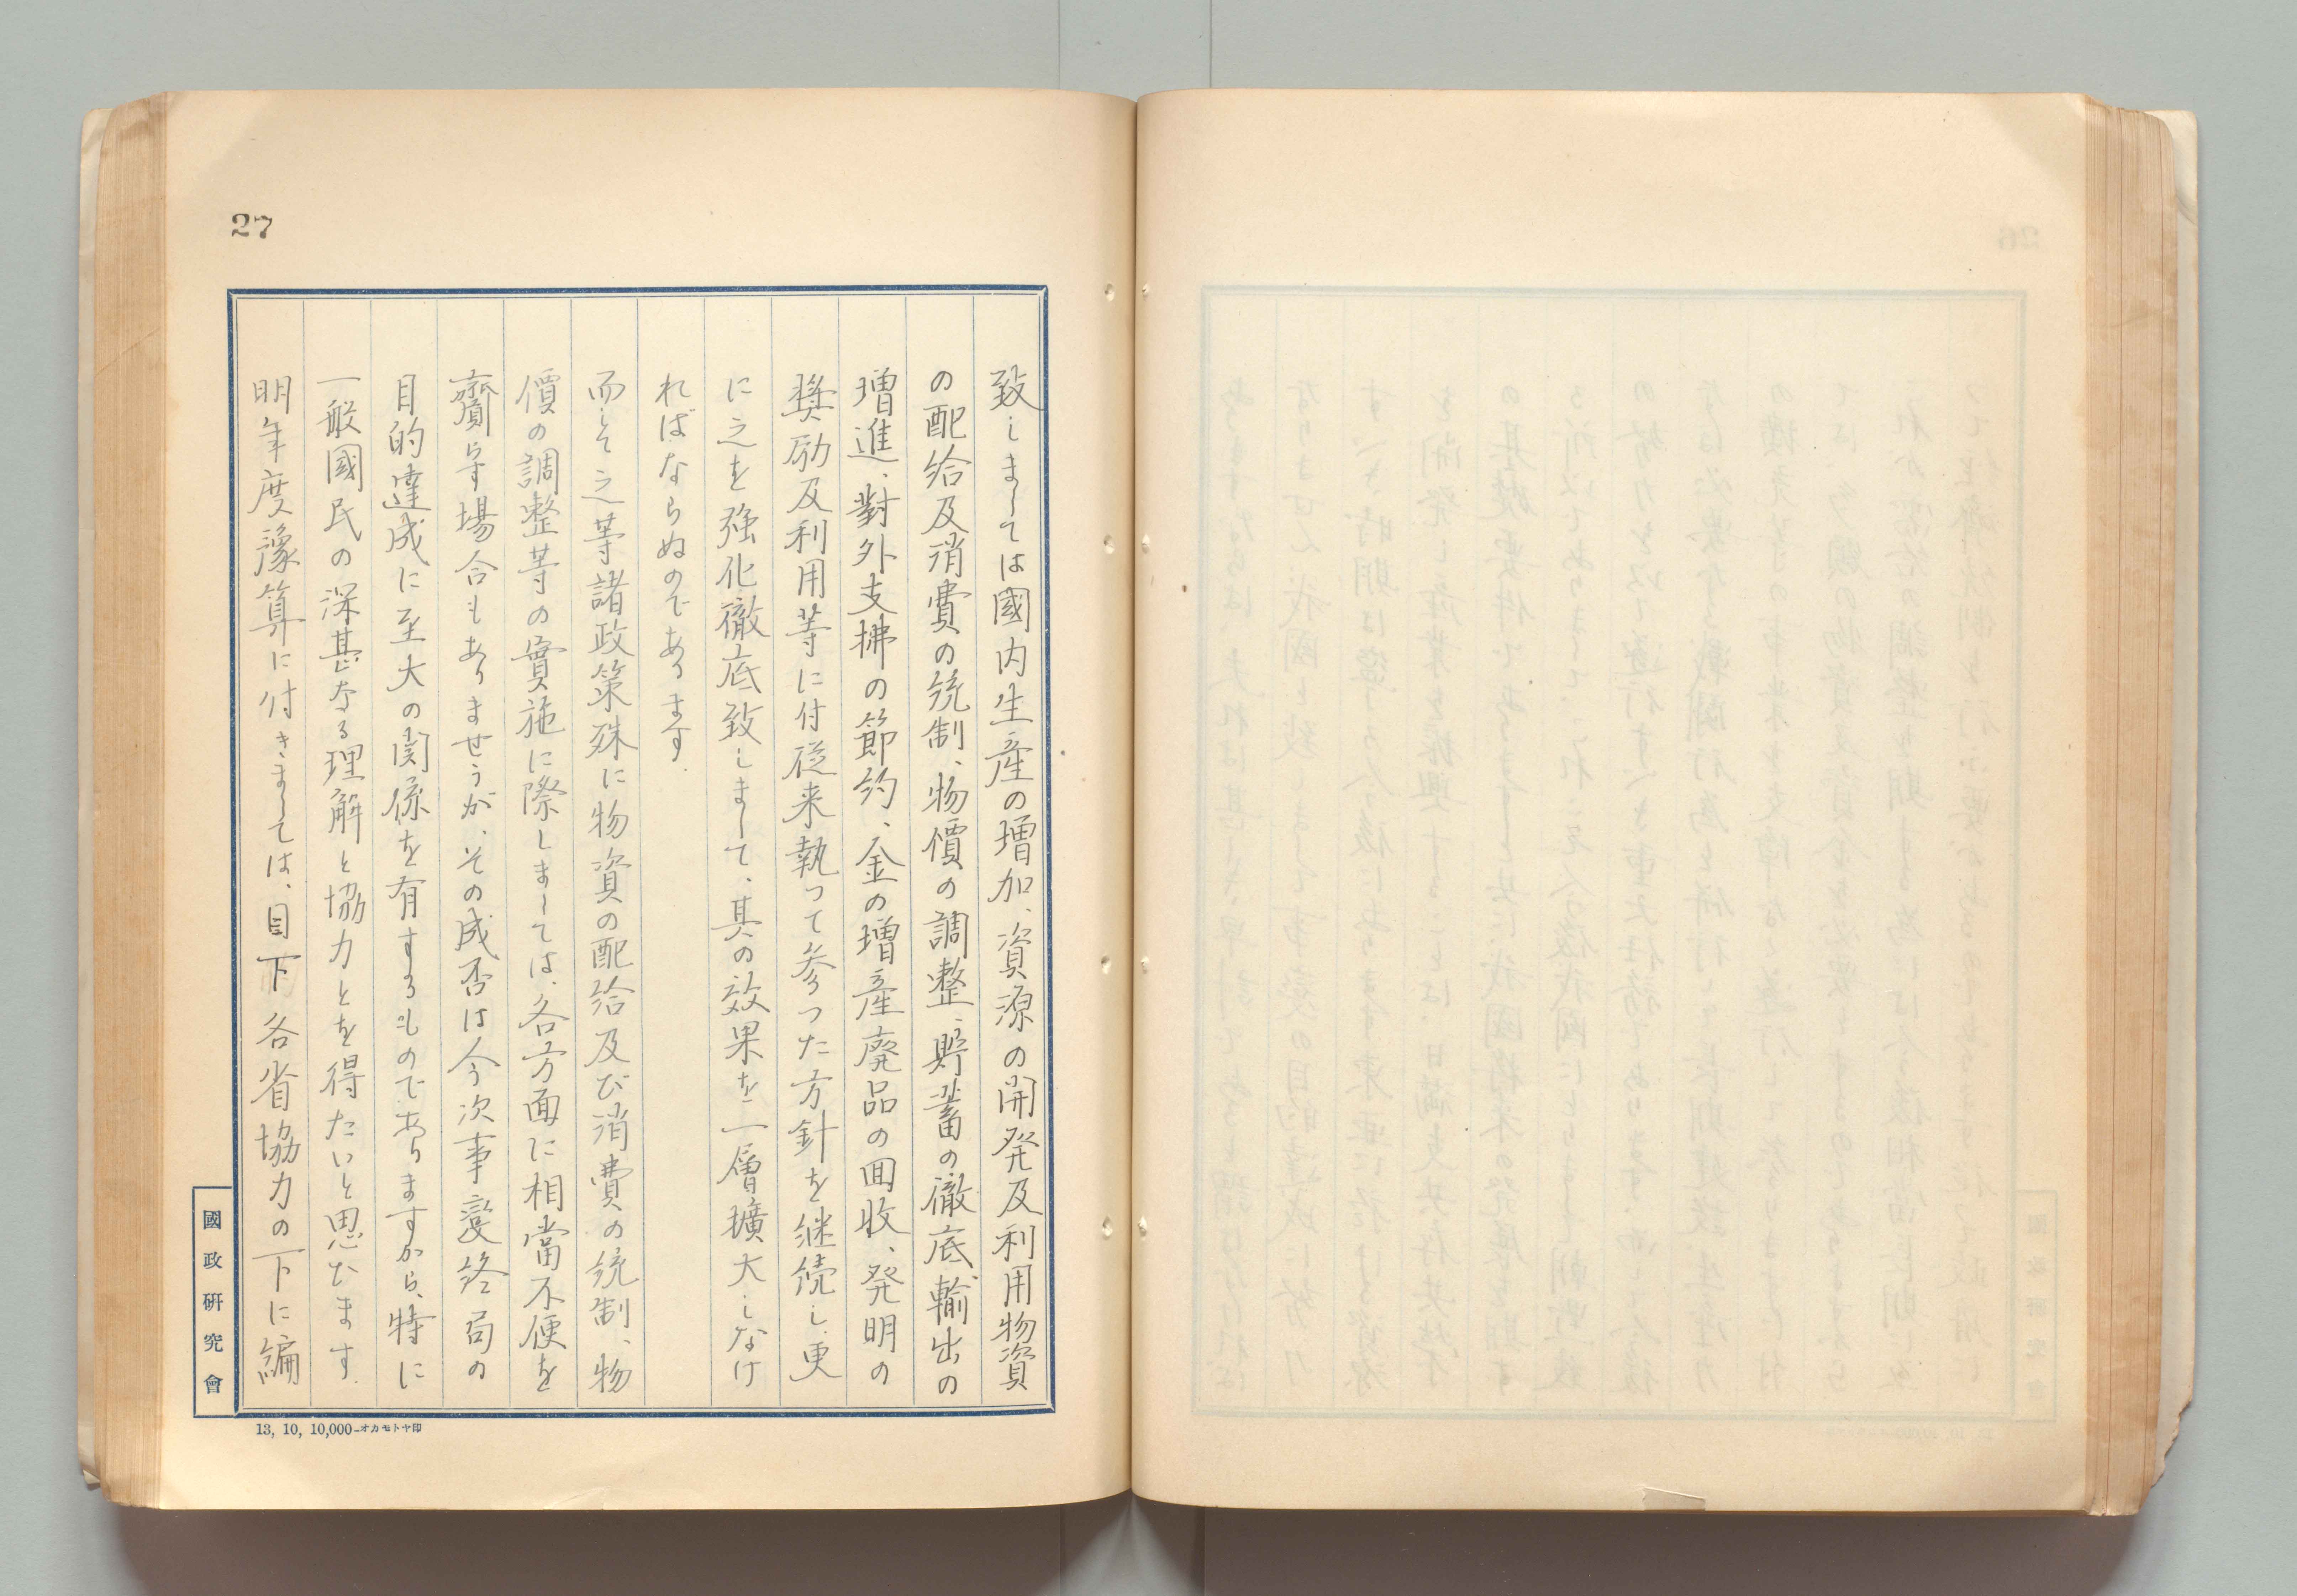 27
致しましては國内生産の増加、資源の開発及利用物資
の配給及消費の統制、物價の調整、貯蓄の徹底輸出の
増進、對外支拂の節約、金の増産廃品の回收、発明の
奨励及利用等に付従来執って参つた方針を継続し、更
に之を強化徹底致しまして、其の效果を一層擴大しなけ
ればならぬのであります.
而して之等諸政策殊に物資の配給及び消費の統制、物
價の調整等の實施に際しましては、各方面に相當不便を
齎らす場合もありませうが、その成否は今次事變終局の
目的達成に至大の関係を有するものでありますから、特に
一般國民の深甚なる理解と協力とを得たいと思ひます.
明年度豫算に付きましては、目下各省協力の下に編
國政研究會
13, 10, 10,000-オカモトヤ印